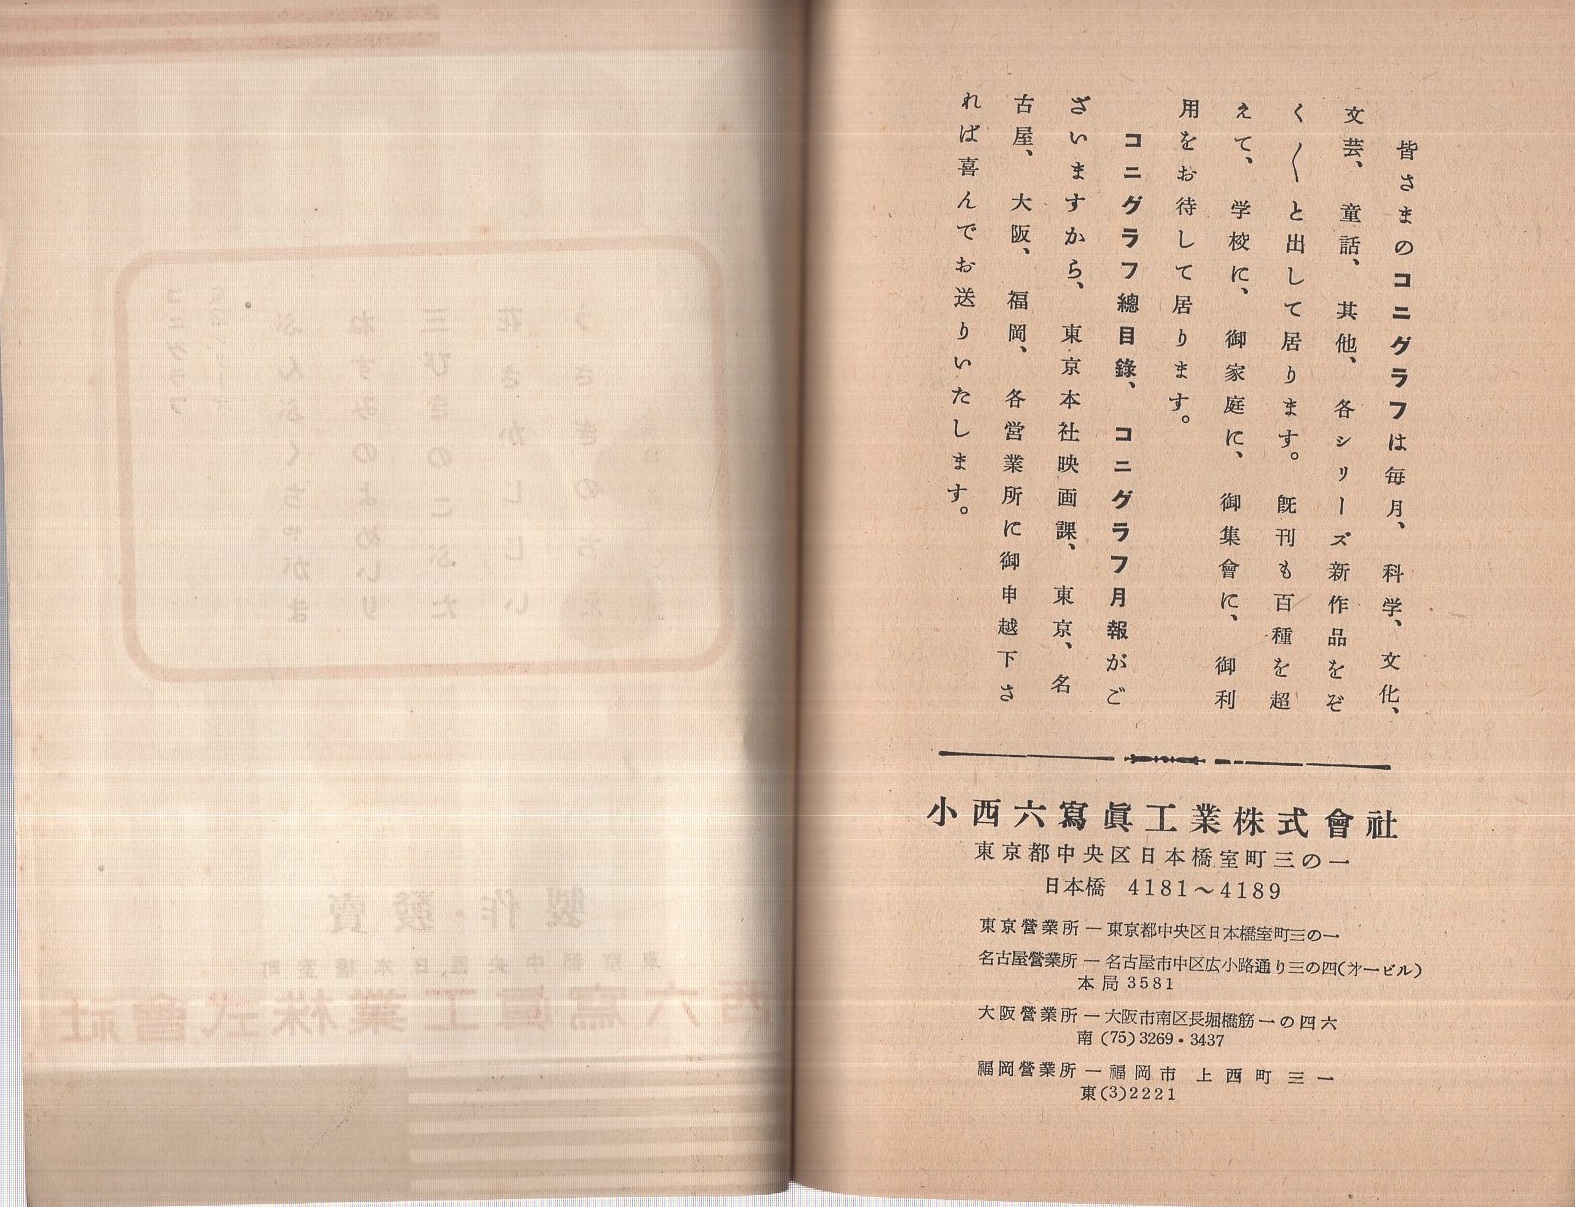 皆さまのコニグラフは毎月、科学、文化、
文芸、童話、其他、各シリーズ新作品をぞ
く〱と出して居ります。既刊も百種を超
えて、学校に、御家庭に、御集會に、御利
用をお待して居ります。
コニグラフ總目錄、コニグラフ月報がご
ざいますから、東京本社映画課、東京、名
古屋、大阪、福岡、各営業所に御申越下さ
れば喜んでお送りいたします。
小西六寫眞工業株式會社
東京都中央区日本橋室町三の一
日本橋 4181〜4189
東京營業所—東京都中央区日本橋室町三の一
名古屋營業所—名古屋市中区広小路通り三の四(オービル)
本局3581
大阪営業所—大阪市南区長堀橋筋一の四六
南(75)3269・3437
福岡營業所—福岡市 上西町三一
東(3)2221
うさぎの
花さかじじい
三びきのこぶた
ねずみのよめいり
ぶんぶくちゃがま
コニグラフ
製作・發賣
東京都中央区日本橋室町
西六寫眞工業株式會社